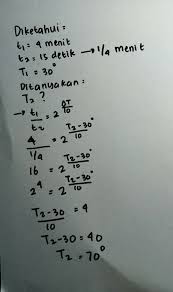 Diketahui :
t₁ = 4 menit
t₂ = 15 detik → 1/4 menit
T₁ = 30°
Ditanyakan :
T₂ ?
→ t₁/t₂ = 2^(ΔT/10)
4/(1/4) = 2^((T₂-30°)/10)
16 = 2^((T₂-30°)/10)
2⁴ = 2^((T₂-30°)/10)
(T₂-30)/10 = 4
T₂-30 = 40
T₂ = 70°